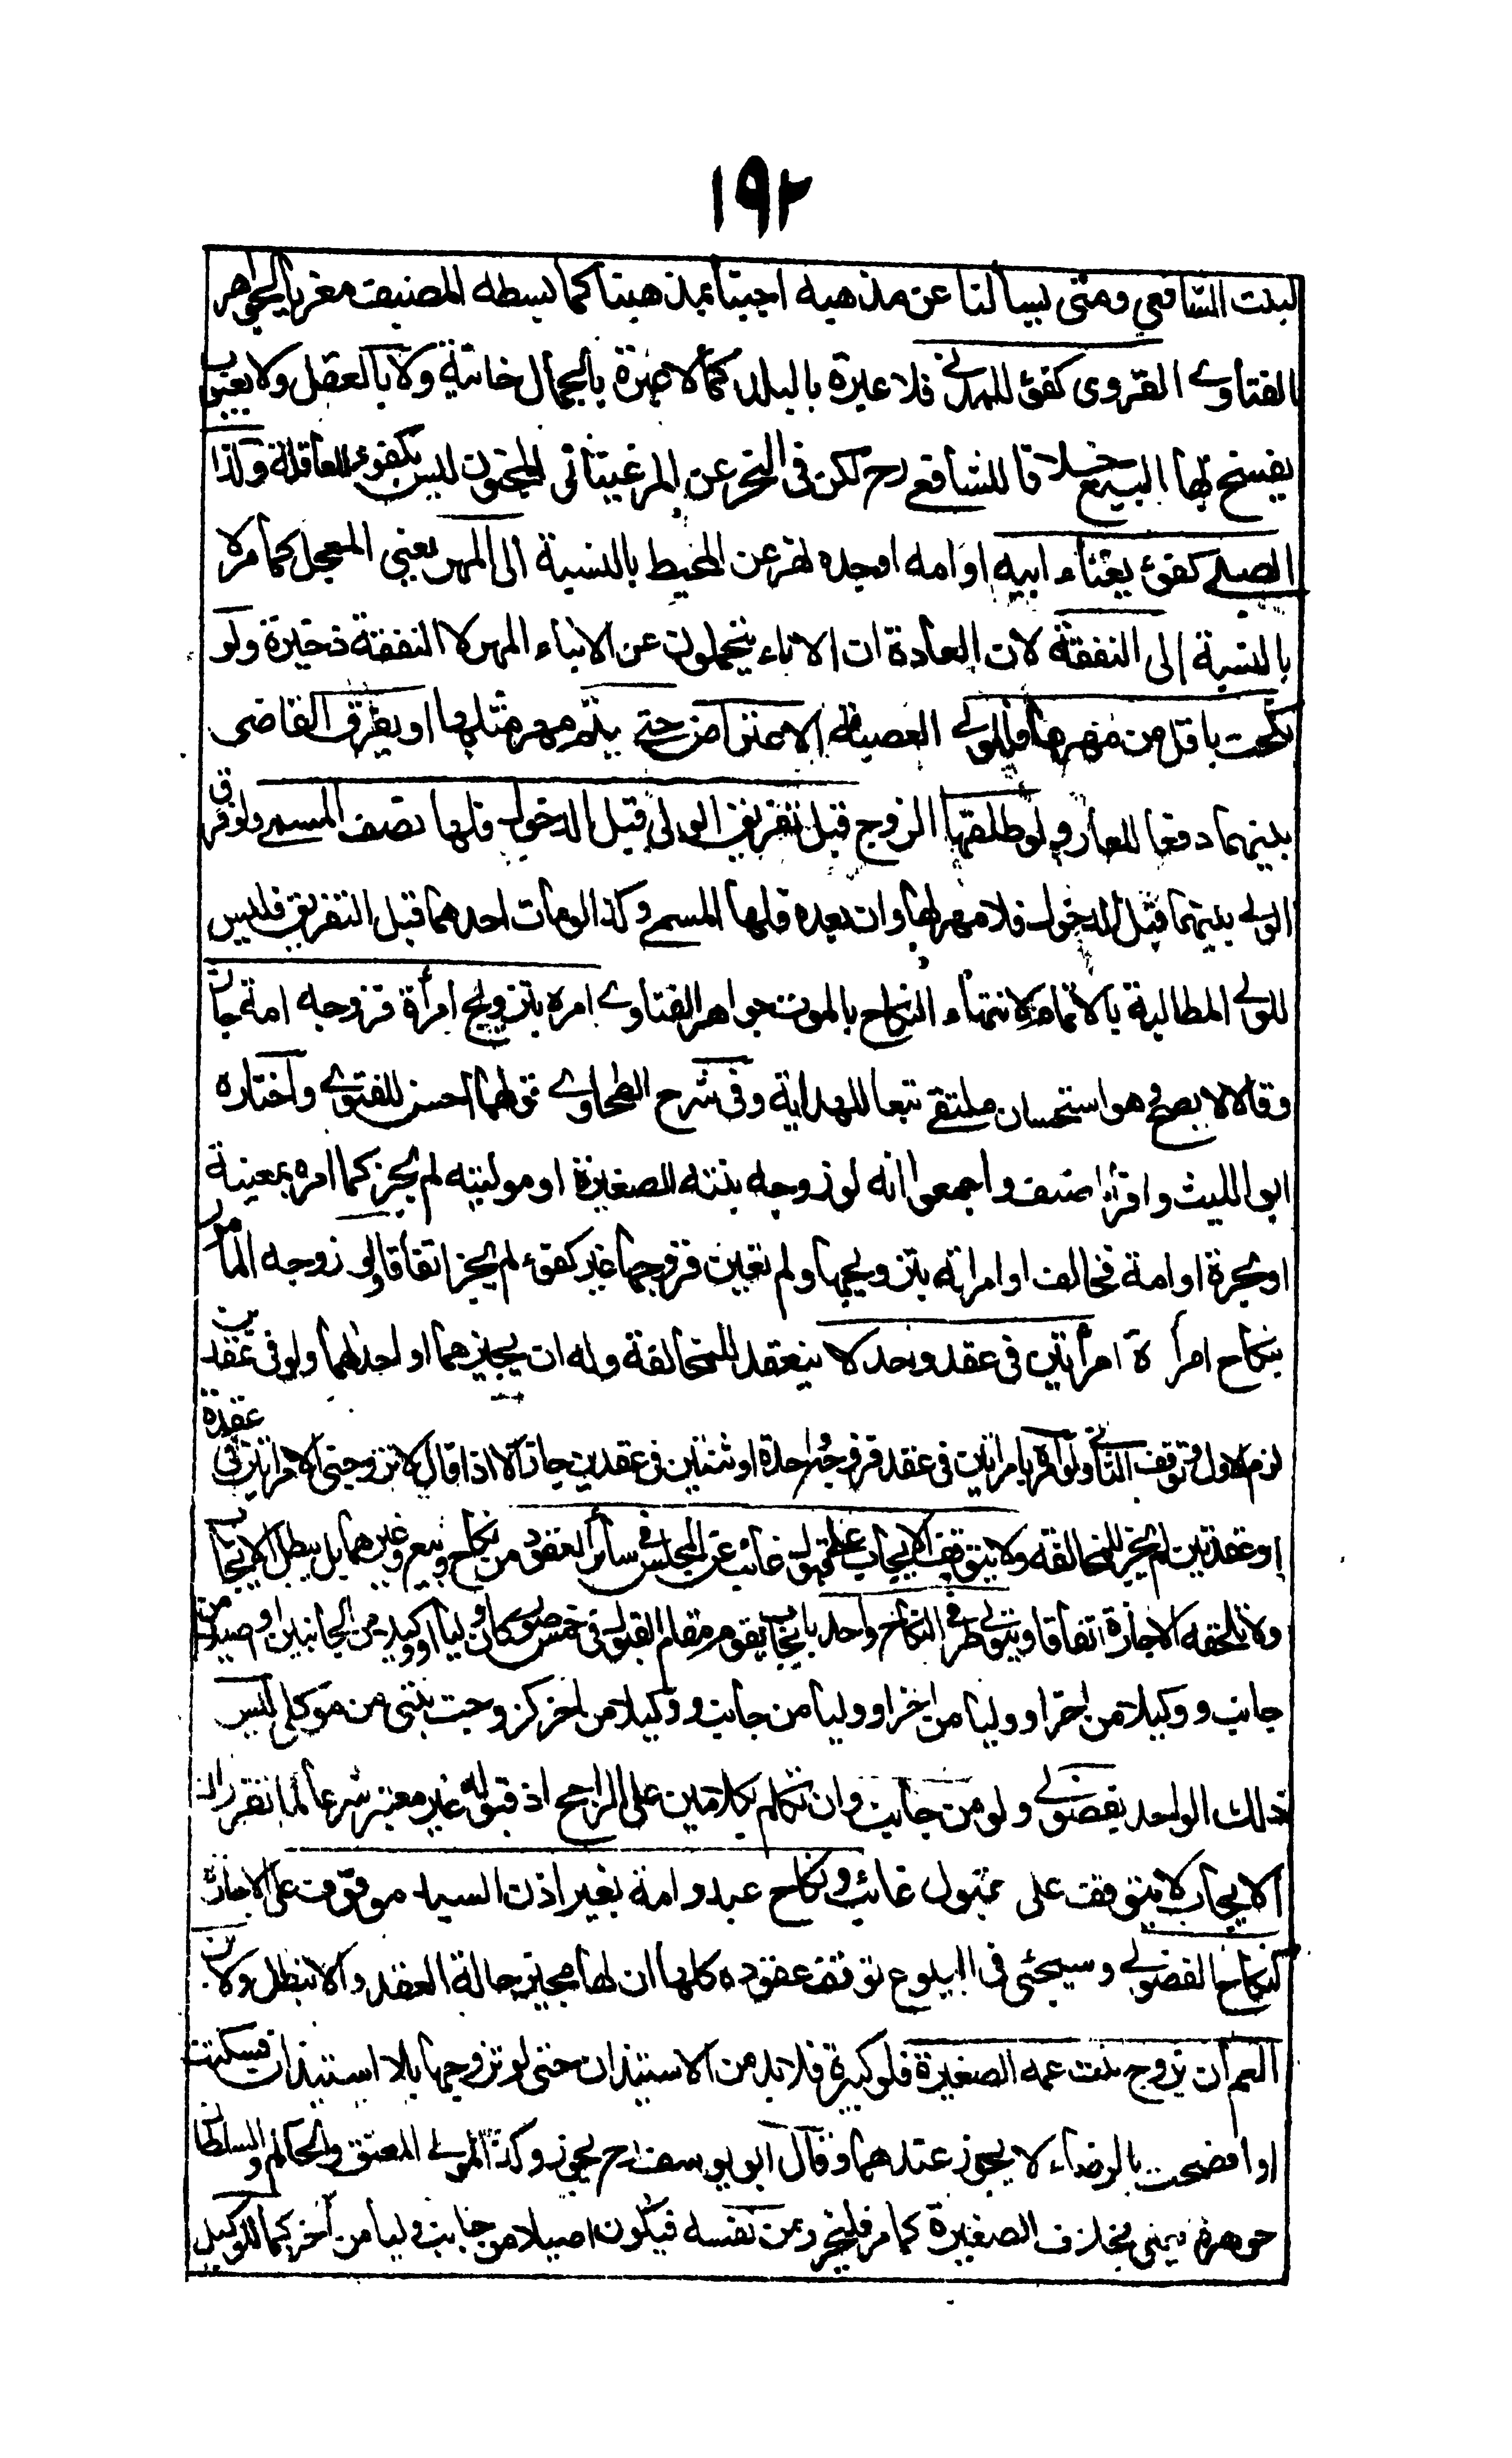 ١٩٢
لبنت الشافعي ومتى يسألنا عن مذهبه اجبنا بمذهبنا كما بسطه المصنف معزيا لجواهر
الفتاوى القروى كفؤ للمدنى فلا عبرة بالبلد كما لا عبرة بالجمال خانية ولا بالعقل ولا بعيوب
يفسخ بها البيع خلافا للشافعى رح لكن فى النهر عن المرغينانى المجنون ليس بكفوء للعاقلة وكذا
الصبى كفؤ بغناء ابيه او امه او جده نهر عن المحيط بالنسبة الى المهر يعنى المعجل كما مر لا
بالنسبة الى النفقة لان العادة ان الاباء يتحملون عن الابناء المهر لا النفقة ذخيرة ولو
نكحت باقل من مهرها فللولى العصبة الاعتراض حتى يتم مهر مثلها او يفرق القاضى
بينهما دفعا للعار ولو طلقها الزوج قبل تفريق الولى قبل الدخول فلها نصف المسمى ولو فرق
الولى بينهما قبل الدخول فلا مهر لها وان بعده فلها المسمى وكذا لو مات احدهما قبل التفريق فليس
للولى المطالبة بالاتمام لانتهاء النكاح بالموت جواهر الفتاوى امره بتزويج امرأة فزوجه امة جاز
وقالا لا يصح هو استحسان ملتقى تبعا للهداية وفى شرح الطحاوى قولهما احسن للفتوى واختاره
ابو الليث واقره المصنف واجمعوا انه لو زوجه بنته الصغيرة او موليته لم يجز كما امره بمعينة
او بحرة او امة فخالف او امرأته بتزويجها ولم تعين فزوجها غير كفؤ لم يجز اتفاقا ولو زوجه المأمور
بنكاح امرأة امرأتين فى عقد وحد لا ينعقد للمخالفة وله ان يجيزهما او احدهما ولو فى عقدين
لزم الاول وتوقف الثانى ولو امره بامرأتين فى عقد فزوجه واحدة او ثنتين فى عقدين جاز الا اذا قال لا تزوجنى الا امرأتين فى عقدة
او عقدتين لم يجز للمخالفة ولا يتوقف الايجاب على قبول غائب عن المجلس فى سائر العقود من نكاح وبيع وغيرهما بل يبطل الايجاب
ولا تلحقه الاجازة اتفاقا ويتولى طرفى النكاح واحد بايجاب يقوم مقام القبول فى خمس صور كان وليا او وكيلا من الجانبين او اصيلا من
جانب و وكيلا من اخر او وليا من اخر او وليا من جانب و وكيلا من اخر كزوجت بنتى من موكلى ليس
ذلك الواحد بفضولى ولو من جانب وان تكلم بكلامين على الراجح اذ قبوله غير معتبر شرعا لما تقرر ان
الايجاب لا يتوقف على قبول غائب ونكاح عبد وامة بغير اذن السيد موقوف على الاجازة
كنكاح الفضولى وسيجئ فى البيوع توقف عقوده كلها ان لها مجيز حالة العقد والا تبطل ولابن
العم ان يزوج بنت عمه الصغيرة فلو كبيرة فلا بد من الاستيذان حتى لو تزوجها بلا استيذان فسكتت
او افصحت بالرضاء لا يجوز عندهما وقال ابو يوسف رح يجوز وكذا المولى المعتق والحاكم والسلطان
جوهرة يعنى بخلاف الصغيرة كما مر فليحرر من نفسه فيكون اصيلا من جانب وليا من آخر كما للوكيل